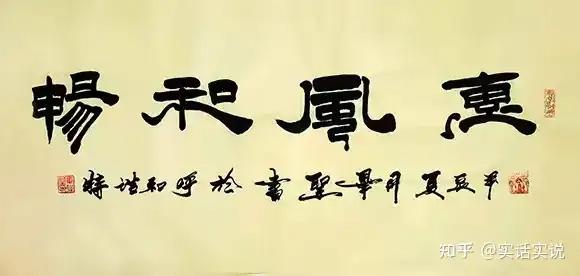 惠風和暢
甲辰夏月畢聖書於呼和浩特
知乎 @实话实说